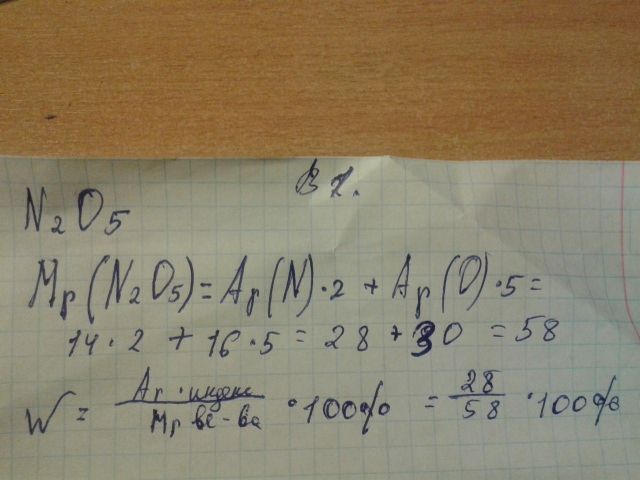 В 1.
N₂O₅
Mr(N₂O₅) = Ar(N)·2 + Ar(O)·5 =
14·2 + 16·5 = 28 + 30 = 58
W = Ar·индекс / Mr ве-ва · 100% = 28/58 · 100%